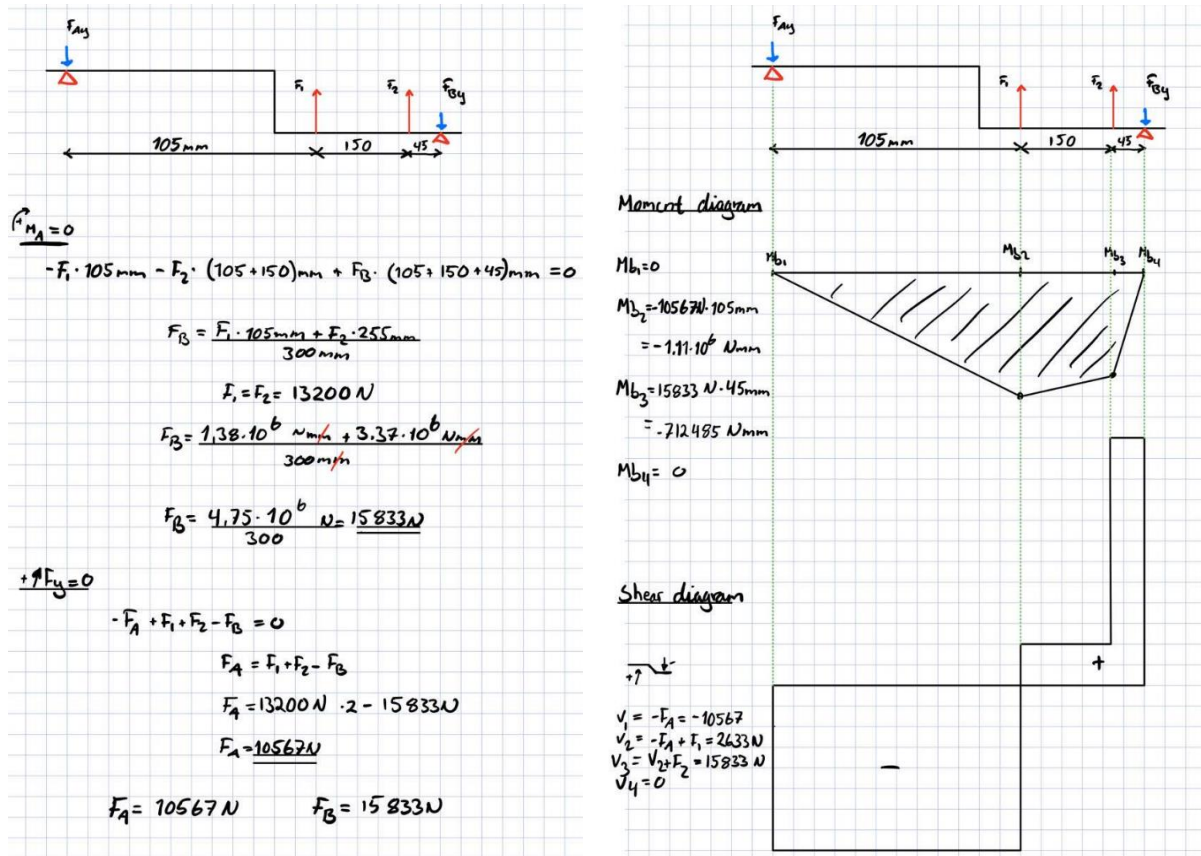 F_Ay
F₁
F₂
F_By
105mm
150
45
+ M_A = 0
-F₁ · 105mm - F₂ · (105+150)mm + F_B · (105+150+45)mm = 0
F_B = F₁ · 105mm + F₂ · 255mm
300mm
F₁ = F₂ = 13200 N
F_B = 1,38·10⁶ Nmm + 3.37·10⁶ Nmm
300mm
F_B = 4,75·10⁶ N = 15833N
300
+↑Fy = 0
-F_A + F₁ + F₂ - F_B = 0
F_A = F₁ + F₂ - F_B
F_A = 13200 N · 2 - 15833N
F_A = 10567N
F_A = 10567 N F_B = 15833N
F_Ay
F₁
F₂
F_By
105mm
150
45
Moment diagram
Mb₁ Mb₂ Mb₃ Mb₄
Mb₁=0
Mb₂=-10567N·105mm
= -1.11·10⁶ Nmm
Mb₃=15833 N·45mm
= -712485 Nmm
Mb₄= 0
Shear diagram
+↑ ↓-
+
V₁ = -F_A = -10567
V₂ = -F_A + F₁ = 2633N
V₃ = V₂+F₂ = 15833 N
V₄=0
-